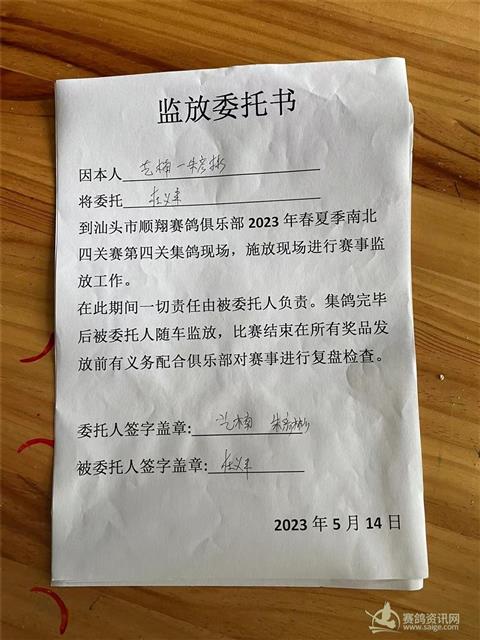 监放委托书
因本人 艺楠一朱彦彬
将委托
到汕头市顺翔赛鸽俱乐部 2023 年春夏季南北
四关赛第四关集鸽现场，施放现场进行赛事监
放工作。
在此期间一切责任由被委托人负责。集鸽完毕
后被委托人随车监放，比赛结束在所有奖品发
放前有义务配合俱乐部对赛事进行复盘检查。
委托人签字盖章: 艺楠 朱彦彬
被委托人签字盖章:
2023 年 5 月 14 日
赛鸽资讯网
www.saige.com